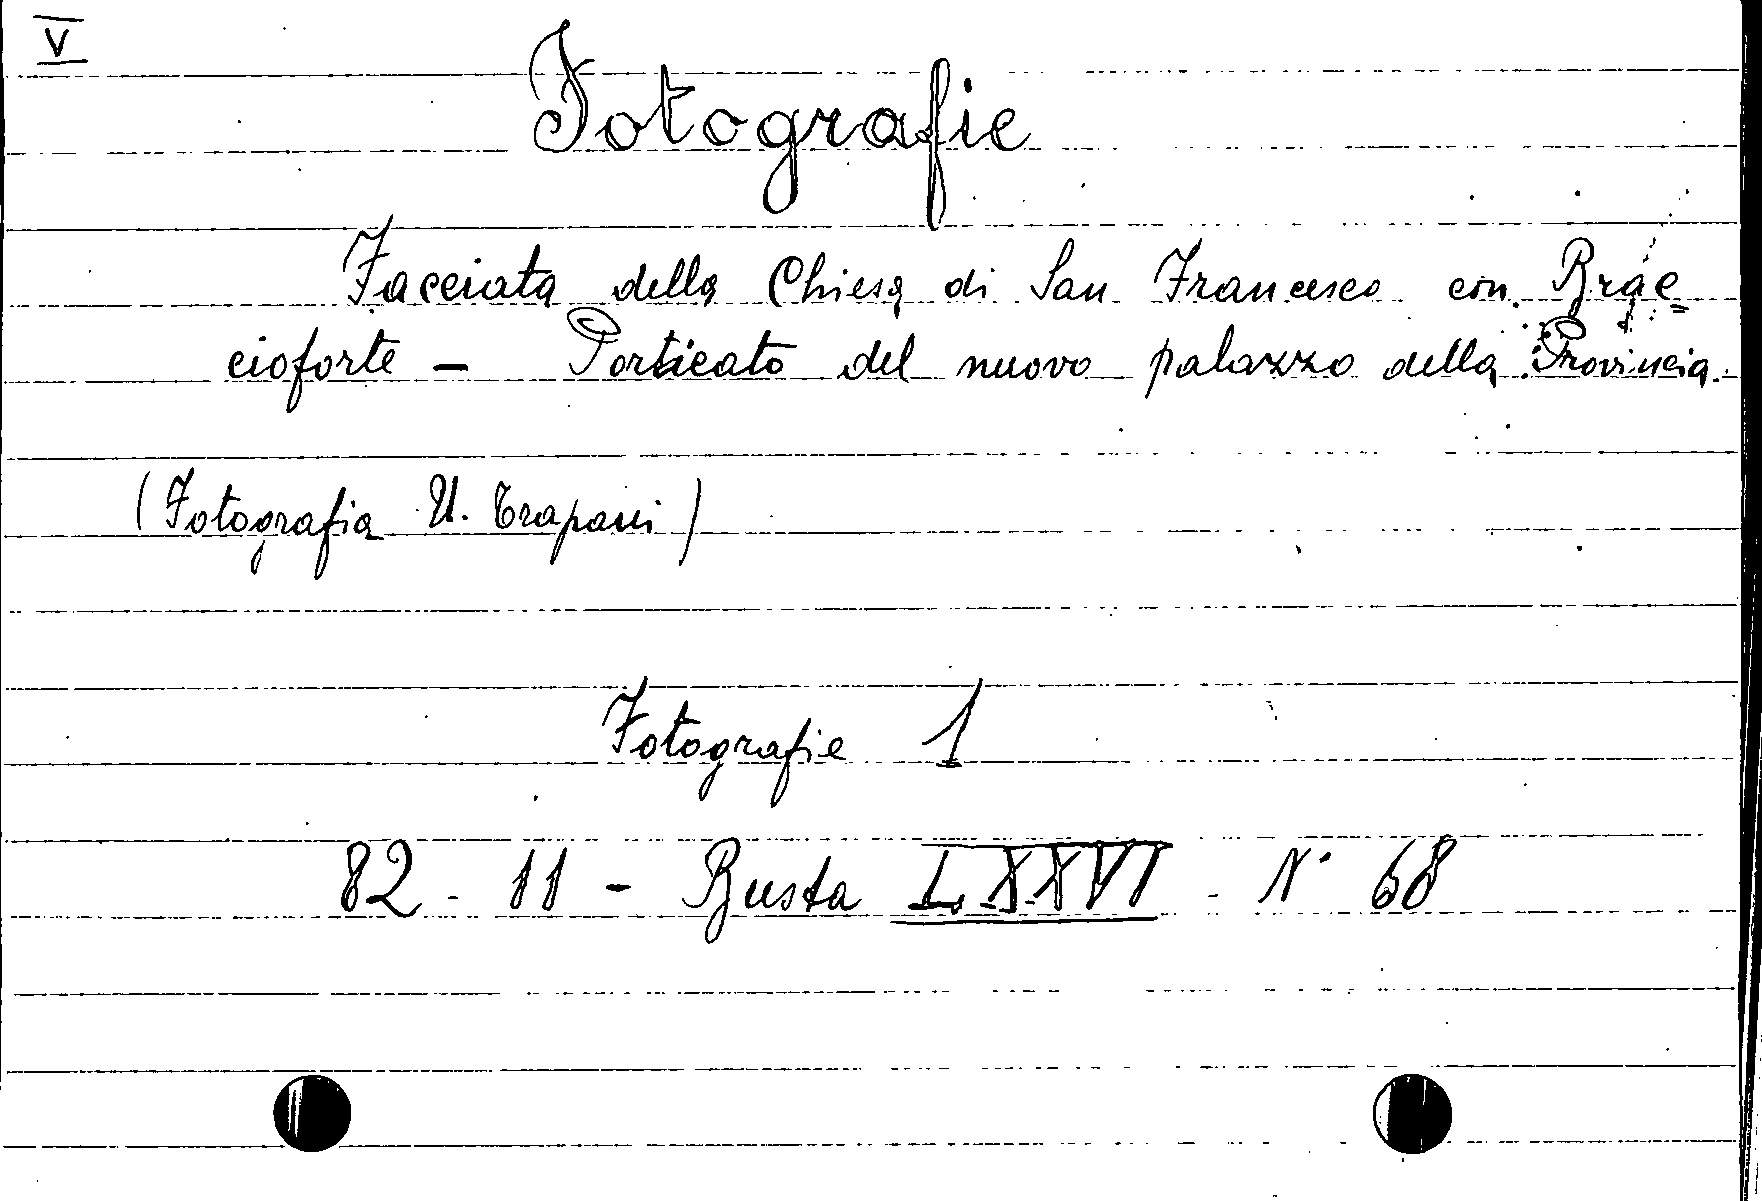 V
Fotografie
Facciata della Chiesa di San Francesco con Brac=
cioforte - Porticato del nuovo palazzo della Provincia.
(Fotografia U. Trapani)
Fotografie 1
82 - 11 - Busta LXXVI - N° 68